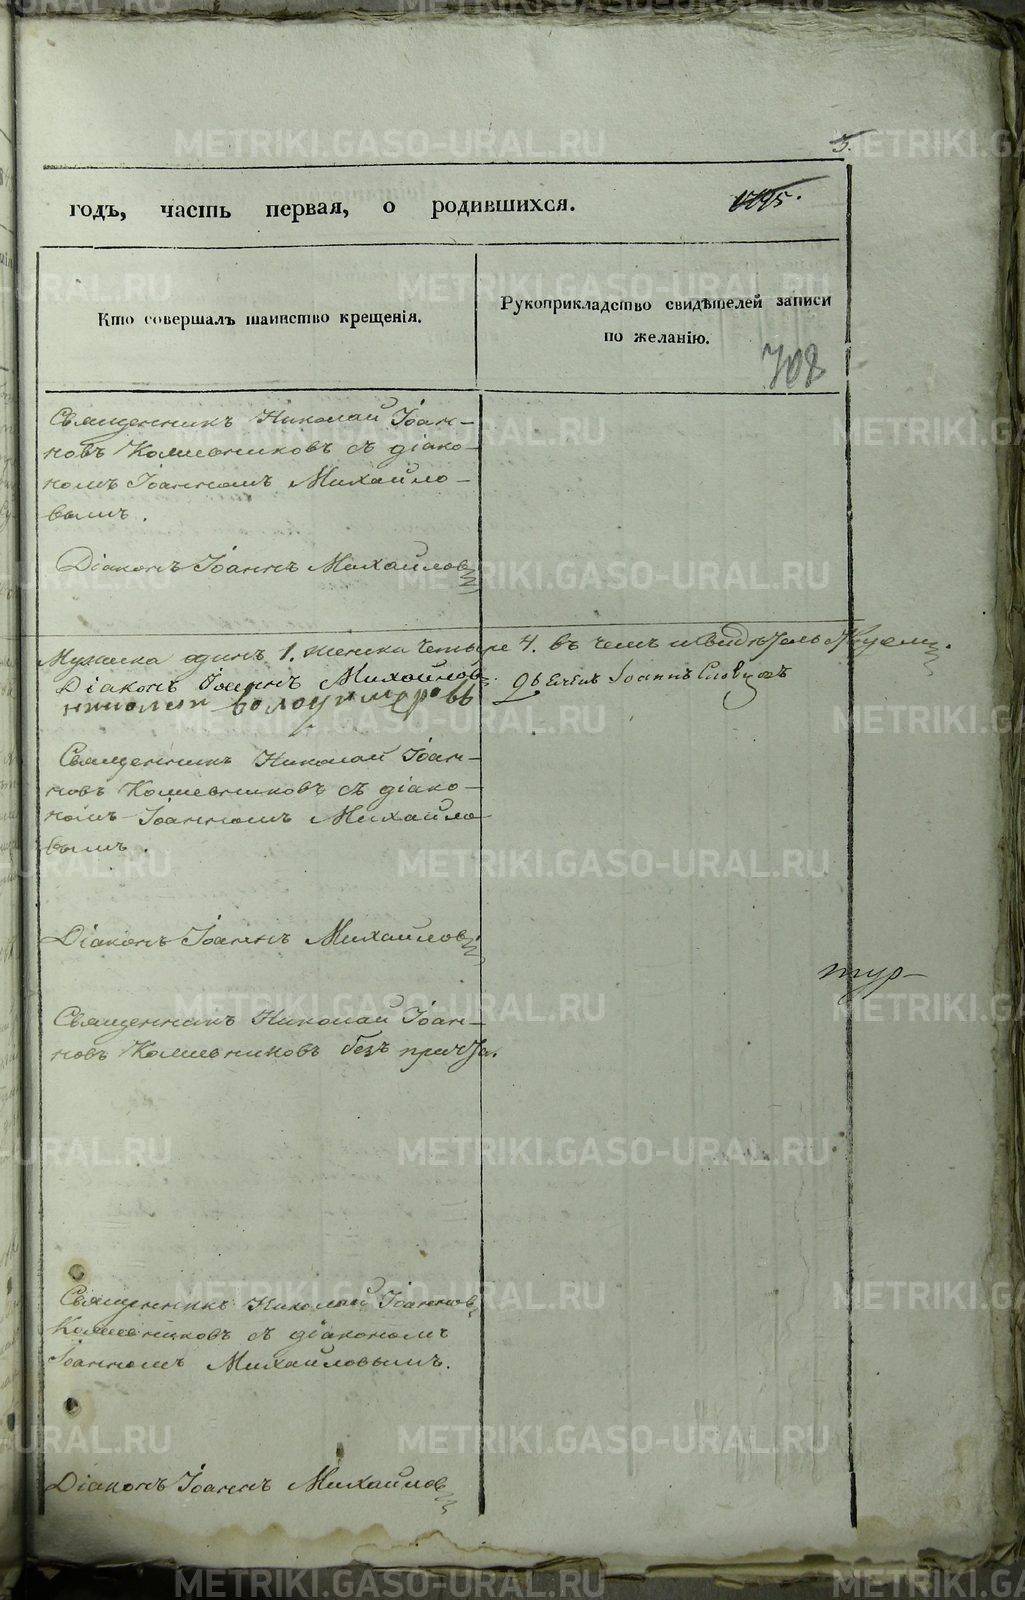 5.
годъ, часть первая, о родившихся.
Кто совершалъ таинство крещенія.
Рукоприкладство свидѣтелей записи
по желанію.
708
Священникъ Николай Іоан-
новъ Комисниковъ съ діако-
номъ Іоанномъ Михайло-
вымъ.
Діаконъ Іоаннъ Михайловъ
Мужеска одинъ 1. женска четыре 4. въ чемъ и свидѣтельствуемъ
Діаконъ Іоаннъ Михайловъ.
Іоаннъ Словцовъ
Священникъ Николай Іоан-
новъ Комисниковъ съ діако-
номъ Іоанномъ Михайло-
вымъ.
Діаконъ Іоаннъ Михайловъ
тур-
Священникъ Николай Іоан-
новъ Комисниковъ безъ причта.
Священникъ Николай Іоанновъ
Комисниковъ съ діакономъ
Іоанномъ Михайловымъ.
Діаконъ Іоаннъ Михайловъ
METRIKI.GASO-URAL.RU